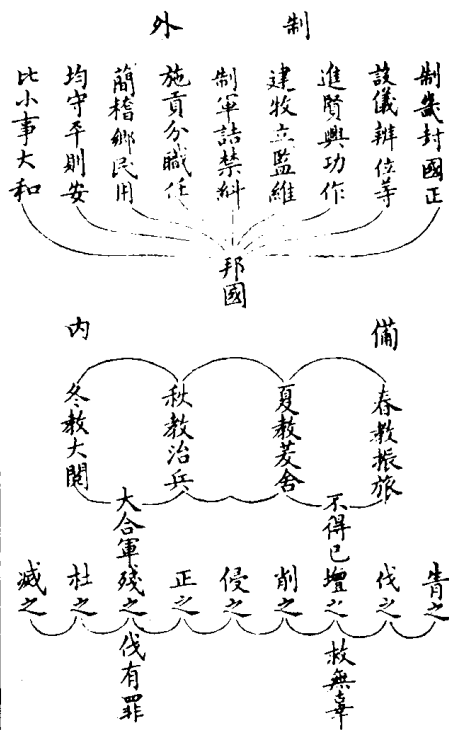 制外
制畿封國正
設儀辨位等
進賢興功作
建牧立監維
制軍詰禁糾
施貢分職任
簡稽鄉民用
均守平則安
比小事大和
邦國
備内
春教振旅
夏教茇舍
秋教治兵
冬教大閱
不得已
大合軍
眚之
伐之
壇之
削之
侵之
正之
殘之
杜之
滅之
救無辜
伐有罪